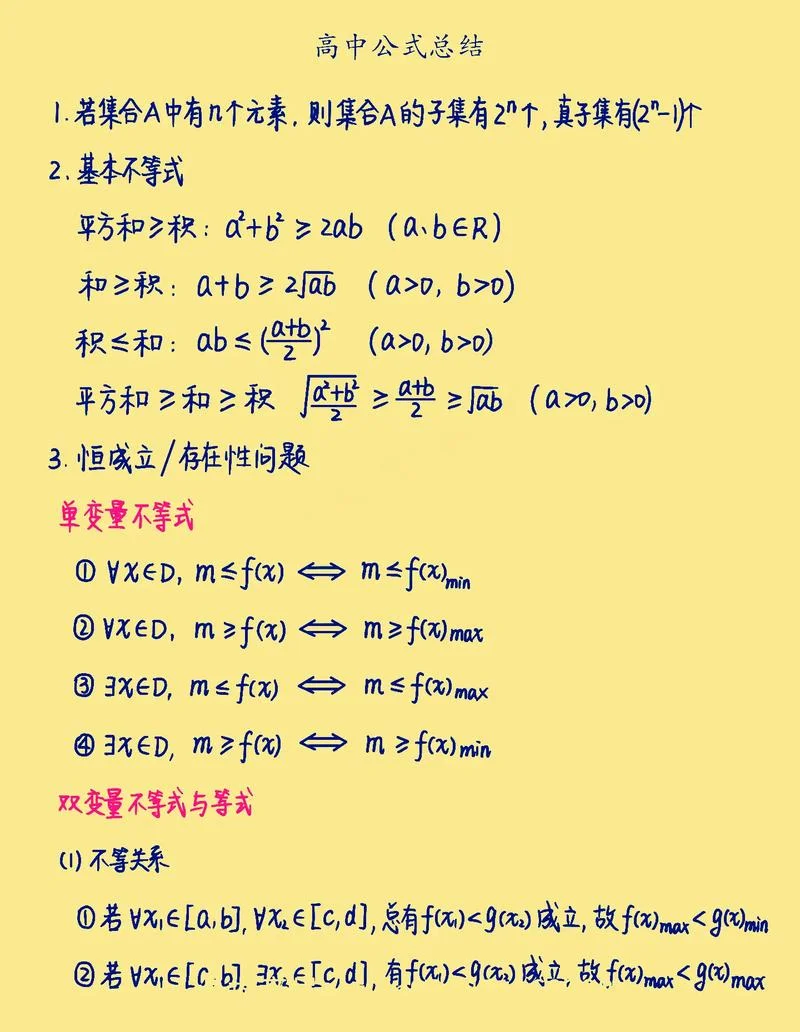 高中公式总结
1.若集合A中有n个元素,则集合A的子集有2ⁿ个,真子集有(2ⁿ-1)个
2.基本不等式
平方和≥积: a²+b²≥2ab (a、b∈R)
和≥积: a+b≥2√ab (a>0, b>0)
积≤和: ab≤((a+b)/2)² (a>0, b>0)
平方和≥和≥积 √((a²+b²)/2) ≥ (a+b)/2 ≥ √ab (a>0, b>0)
3.恒成立/存在性问题
单变量不等式
① ∀x∈D, m≤f(x) ⟺ m≤f(x)min
② ∀x∈D, m≥f(x) ⟺ m≥f(x)max
③ ∃x∈D, m≤f(x) ⟺ m≤f(x)max
④ ∃x∈D, m≥f(x) ⟺ m≥f(x)min
双变量不等式与等式
(1)不等关系
①若∀x₁∈[a,b],∀x₂∈[c,d],总有f(x₁)<g(x₂)成立,故f(x)max<g(x)min
②若∀x₁∈[c,b],∃x₂∈[c,d],有f(x₁)<g(x₂)成立,故f(x)max<g(x)max